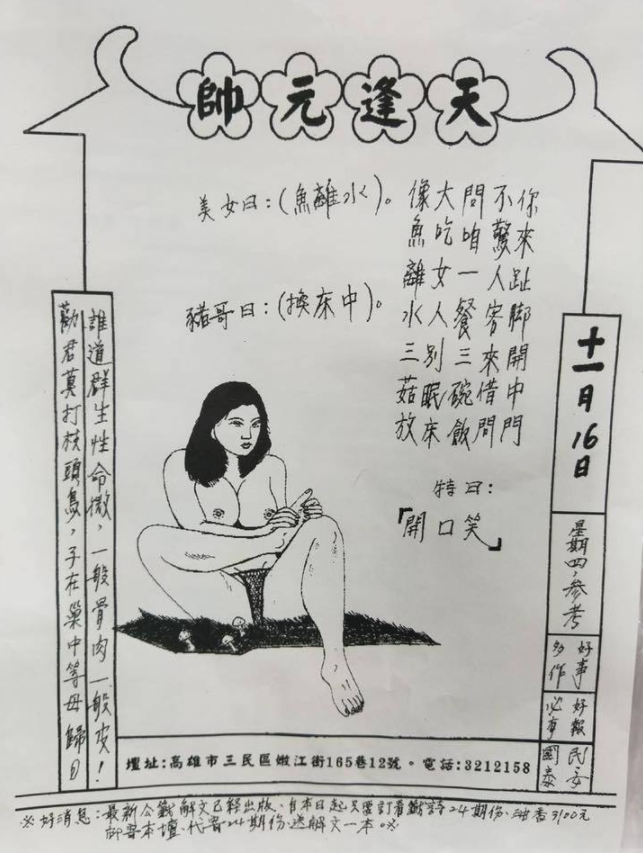 天逢元帥
你來趾脚開中門
不驚人客來借問
問咱一餐三碗飯
大吃女人別眠床
像魚離水三菇放
美女曰:(魚離水)。
豬哥曰:(換床中)。
特曰:
「開口笑」
十一月16日
星期四·參考
好事
多作
好報
必享
民安
國泰
誰道群生性命微,一般骨肉一般皮!
勸君莫打枝頭鳥,子在巢中等母歸
壇址:高雄市三民區嫩江街165巷12號。電話:3212158
※好消息:最新公籤解文已經出版、自本日起只要訂看籤詩24期份、油香3100元
寄本壇、代寄24期份、送解文一本※